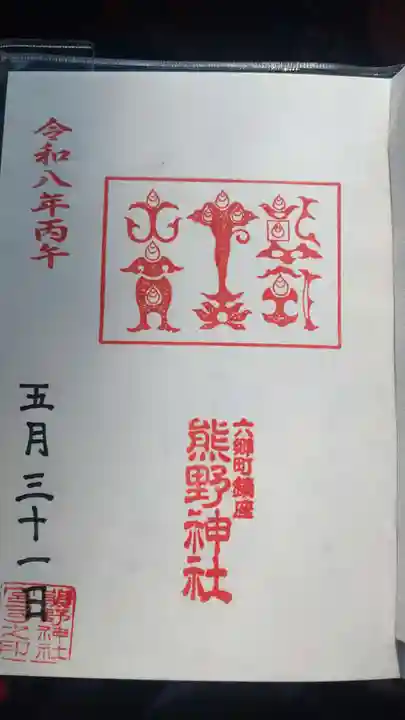 六郷町鎮座
熊野神社
令和八年丙午
五月三十一日
熊野神社
宮司之印